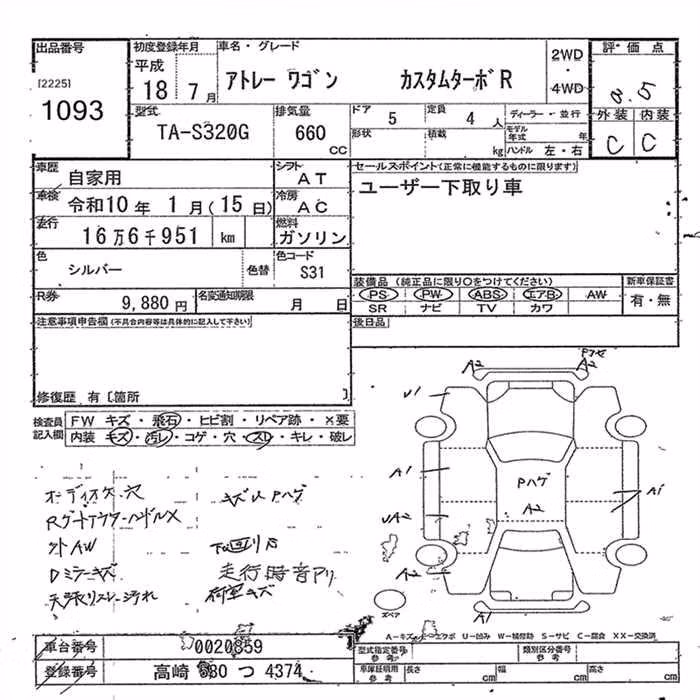 出品番号 初度登録年月 車名・グレード 2WD・4WD 評価点
[2225] 1093 平成 18 7月 アトレー ワゴン カスタムターボR 3.5
型式 排気量 ドア 5 定員 4人 ディーラー・並行 外装 内装
TA-S320G 660cc 形状 積載 kg モデル年式 年 ハンドル 左・右 C C
車歴 自家用 シフト AT セールスポイント(正常に機能するものに限ります)
車検 令和10年 1月(15日) 冷房 AC ユーザー下取り車
走行 16万6千951 km 燃料 ガソリン
色 シルバー 色替 色コード S31
装備品(純正品に限り○をつけてください) 新車保証書
R券 9,880円 名変通知期限 月 日 PS PW ABS エアB AW 有・無
SR ナビ TV カワ
注意事項申告欄(不具合内容等は具体的に記入して下さい) 後日品
修復歴 有〔箇所 〕
検査員記入欄 FW キズ・飛石・ヒビ割・リペア跡・×要
内装 キズ・汚レ・コゲ・穴・スレ・キレ・破レ
A2 A2
U1
A1 Pハゲ A1
A2
UA2
A2
A1
スペア
オーディオケ穴 キズ凹Pハゲ
RゲートアウターハンドルX
外AW 下回りサビ
Dミラーキズ 走行時音アリ
天張リスレ汚れ 荷室キズ
A-キズ E-エクボ U-凹み W-補修跡 S-サビ C-腐食 XX-交換済
車台番号 0020859 型式指定番号 参考 類別区分番号 参考
登録番号 高崎 580 つ 4374 車庫証明用 参考 長さ cm 幅 cm 高さ cm